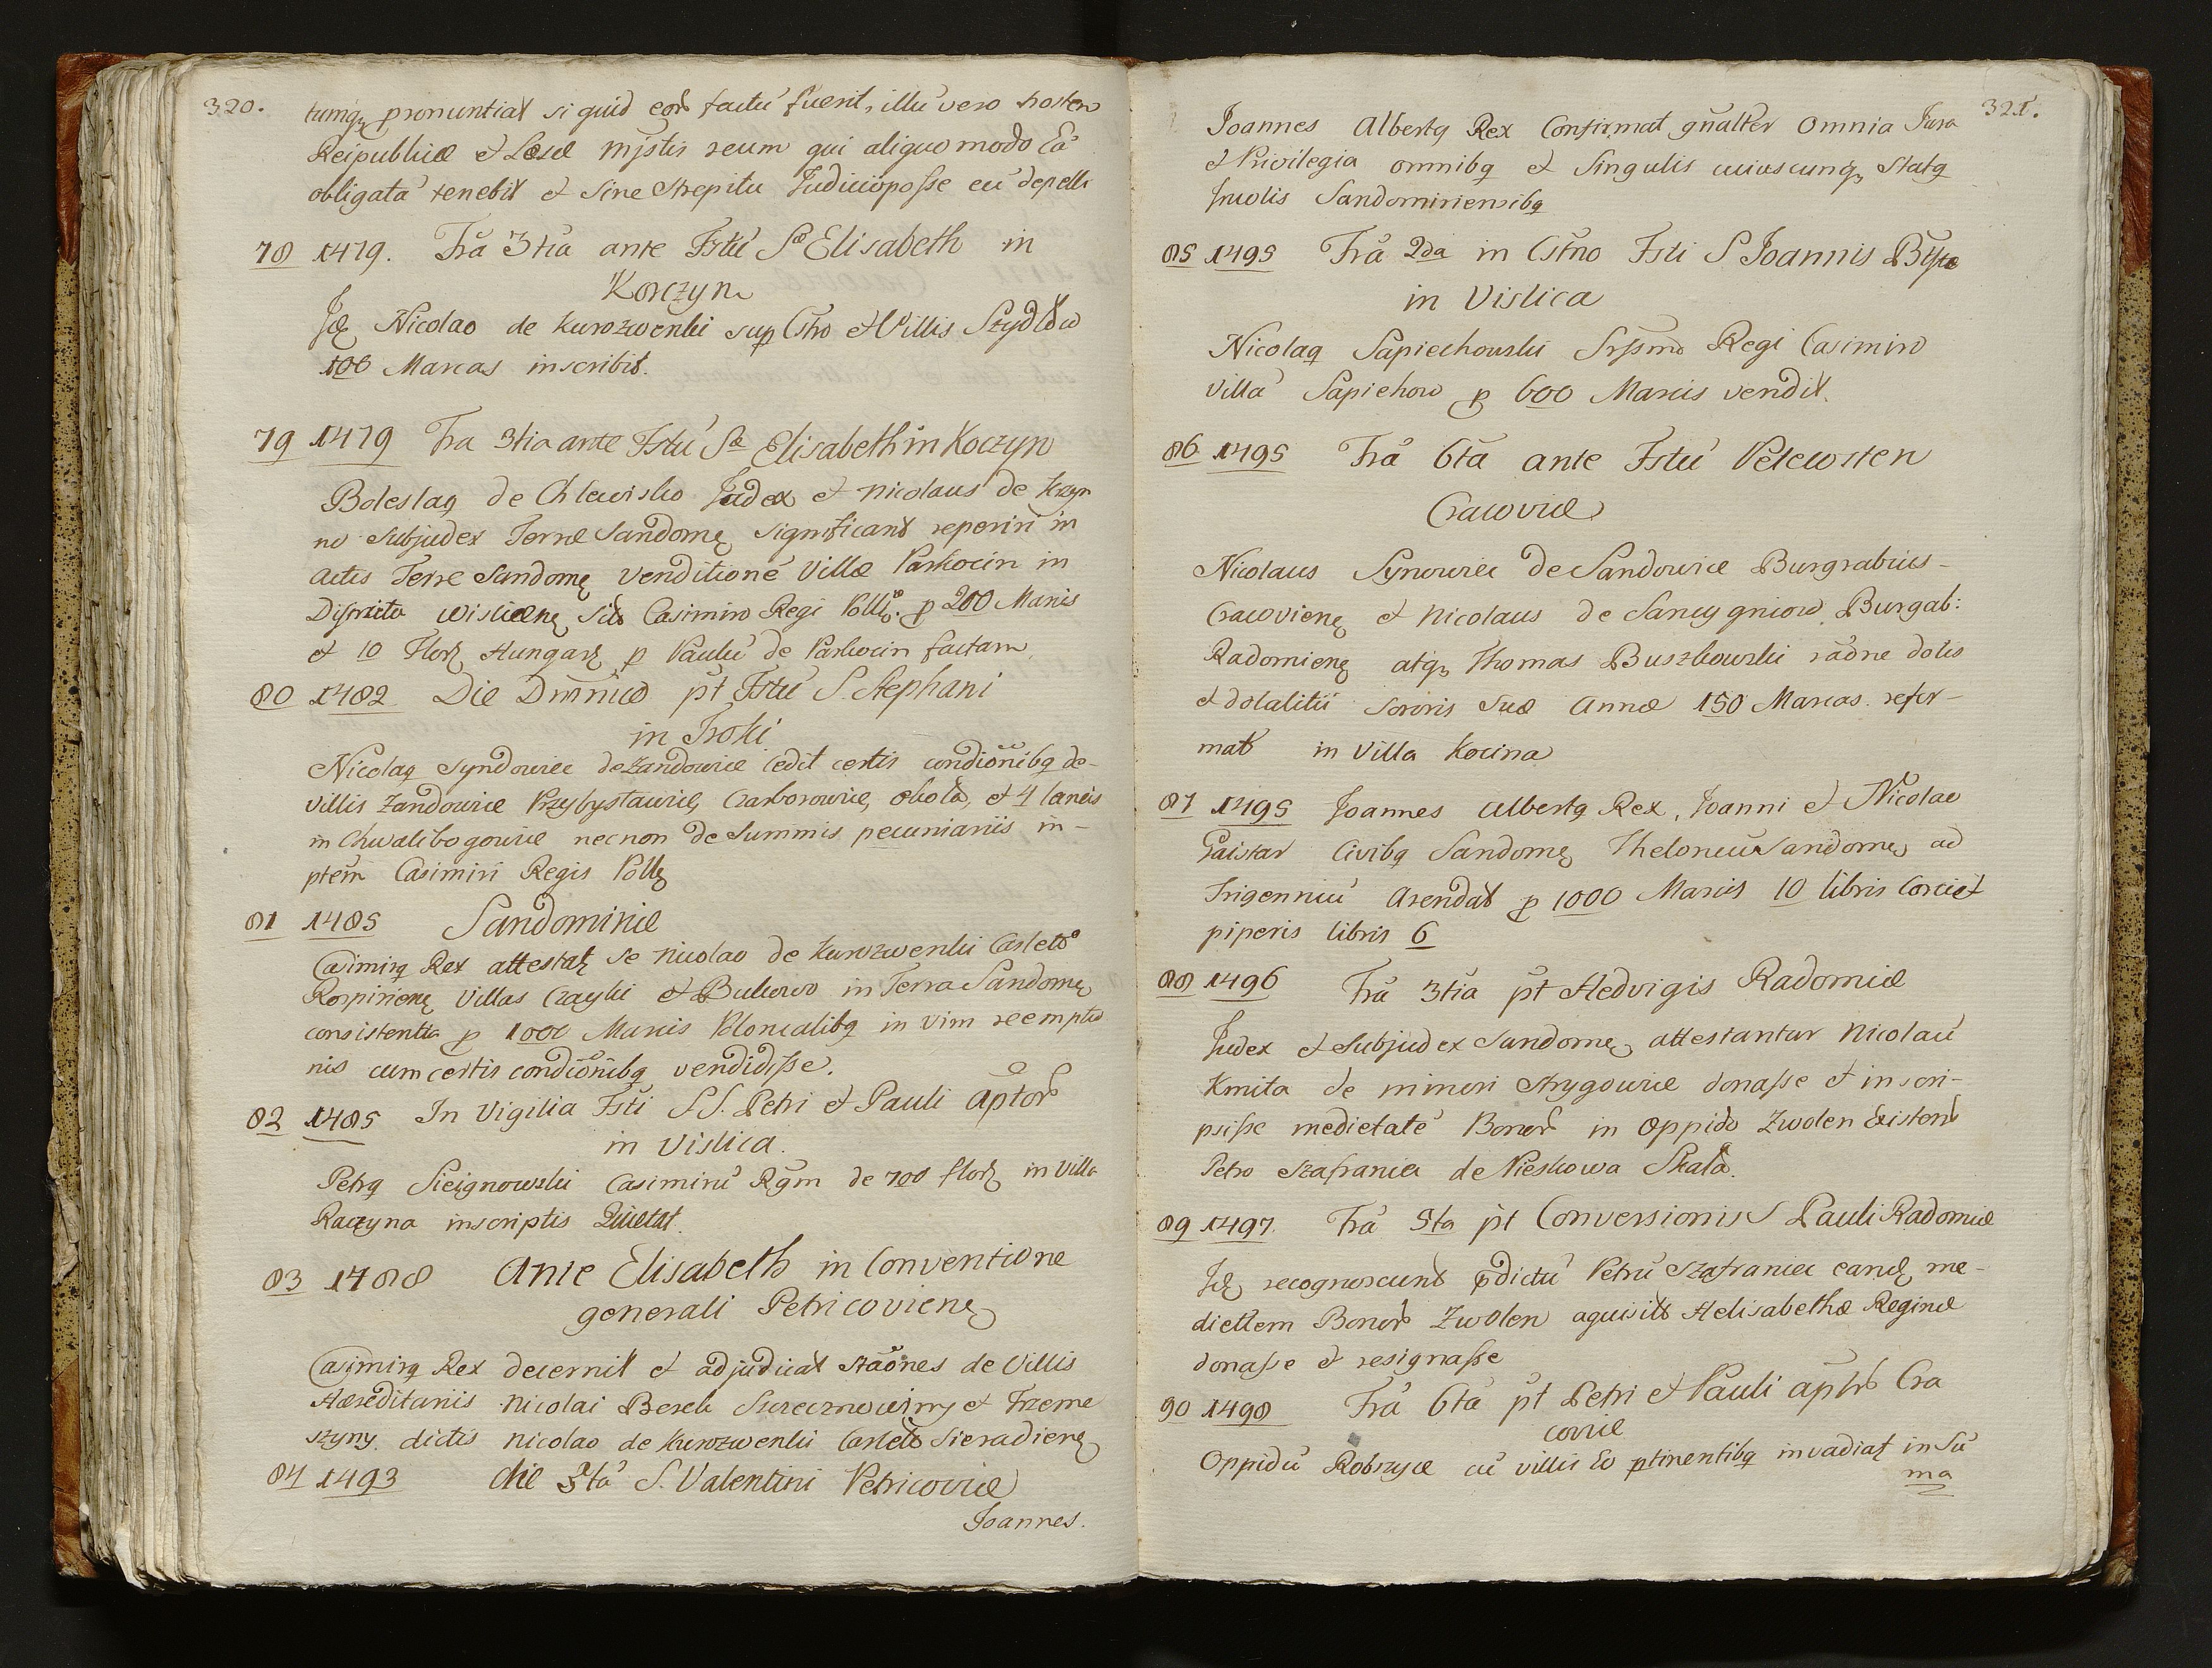 320.
tumq pronuntiat si quid eor factu fuerit, illu vero hostem
Reipublicæ et Læsæ Mjstis reum qui aliquo modo Ea
obligata tenebit et sine strepitu Judicii posse eu depelli
78 1479. Fra 3tia ante Fstu S Elisabeth in
Korczyn
Jde Nicolao de Kurozwenki sup Cstro et Villis Szydlow
100 Marcas inscribit.
79 1479 Fra 3tia ante Fstu S Elisabeth in Koczyn
Boleslaq de Chlewisko Judex et Nicolaus de
no Subjudex Terræ Sandome significant reperiri in
Actis Terre Sandome venditione Villæ Parkocin in
Districtu Wislicene Casimiro Regi Polle p 200 Marcis
et 10 Flor Hungar p Paulu de Parkocin factam
80 1482 Die Dmnico pt Fstu S. Stephani
in Troki
Nicolaq Syndowiec de Zandowice cedit certis condionibq de-
villis Zandowice Przybyslawice, Czarborowice, et 4 laneis
in Chwalibogowice necnon de Summis pecuniariis in-
ptem Casimiri Regis Polle
81 1485 Sandomiriæ
Casimirq Rex attestat se Nicolao de Kurozwenki Castelo
Rospiriene Villas Czayki et Bukowo in Terra Sandome
consistentia p 1000 Marcis Polonicalibq in vim reemptio
nis cum certis condionibq vendidisse.
82 1485 In Vigilia Fsti S.S. Petri et Pauli aptor
in Vislica.
Petrq Sieignowski Casimiru Rgm de 700 flor in Villa
Raczyna inscriptis Quietat.
83 1488 Ante Elisabeth in Conventione
generali Petricoviene
Casimirq Rex decernit et adjudicat staones de Villis
Hæreditariis Nicolai Berek et Trzeme
szyny dictis Nicolao de Kurozwenki Castelo Sieradiene
84 1493 die 3ta S. Valentini Petricoviæ
Joannes.
321.
Joannes Albertq Rex Confirmat gnalter Omnia Jura
et Privilegia omnibq et Singulis cuiuscunq Statq
Incolis Sandomiriensibq
85 1495 Fra 2da in Cstno Fsti S Joannis Bptæ
in Vislica
Nicolaq Sapiechowski Srssmo Regi Casimiro
villa Sapiehow p 600 Marcis vendit.
86 1495 Fra 6ta ante Fstu Petecosten
Cracoviæ
Nicolaus Synowiec de Sandowice Burgrabius-
Cracoviene et Nicolaus de Sancygniow Burgab:
Radomiene atq Thomas Buszkowski raone dotis
et dotalitii sororis Suæ Annæ 150 Marcas refor-
mat in Villa Kocina
87 1495 Joannes Albertq Rex, Joanni et Nicolao
Gaistar Civibq Sandome Theloneu Sandome ad
Trigenniu Arendat p 1000 Marcis 10 libris Croci et
piperis libris 6
88 1496 Fra 3tia pt Hedvigis Radomiæ
Judex et Subjudex Sandome attestantur Nicolau
Kmita de minori Strygowice donasse et inscri-
psisse medietate Bonor in Oppido Zwolen Existent
Petro Szafraniec de Pieskowa Skala.
89 1497. Fra 5ta pt Conversionis S Pauli Radomiæ
Jde recognoscunt pdictu Petru Szafraniec eande me-
diettem Bonor Zwolen aquisit Helisabethæ Reginæ
donasse et resignasse
90 1498 Fra 6ta pt Petri et Pauli aptor Cra
coviæ
Oppidu Robczyce cu villis Eo ptinentibq invadiat in Su
ma